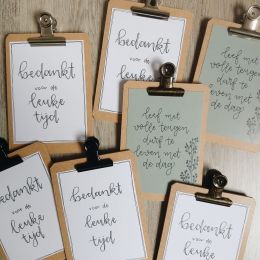 bedankt
voor de
leuke
tijd
bedankt
voor de
leuke
tijd
leef met
volle teugen
durf te
leven met
de dag
leef met
volle teugen
durf te
leven met
de dag
bedankt
voor de
leuke
tijd
bedankt
voor de
leuke
tijd
bedankt
voor de
leuke